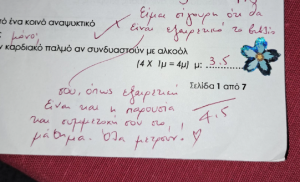 Είμαι σίγουρη ότι θα
από ένα κοινό αναψυκτικό
είναι εξαιρετικό το βιβλίο
μόνο;
καρδιακό παλμό αν συνδυαστούν με αλκοόλ
(4 X 1μ = 4μ) μ: 3.5
σου, όπως εξαιρετική
Σελίδα 1 από 7
είναι και η παρουσία
4.5
και συμμετοχή σου στο
μάθημα. Όλα μετρούν!